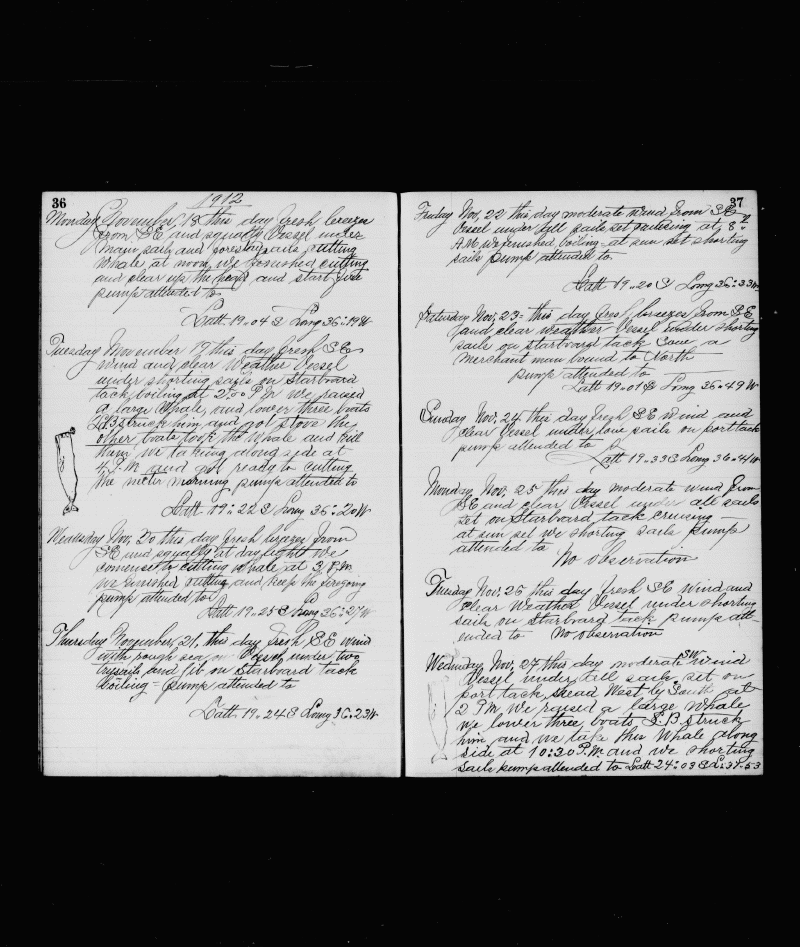 36
1912
Monday November, 18 this day fresh breezes
from S,E and squally Vessel under
main sail, and forestaysails cutting
whale at noon, we fenished cutting
and clear up the and start fire
pump attended to
Latt 19.04 S Long 36:19 W
Tuesday November 19 this day fresh S,E
wind and clear Weather Vessel
under shorting sails on Starboard
tack boiling at 2:00 P.M we raised
a large Whale, and lower three boats
struck him and got stove the
other boats took the Whale and kill
him we taking along side at
4 P.M and got ready to cutting
the morning pump attended to
Latt. 19:22 S Long 36:20 W
Wednesday Nov, 20 this day fresh breezes from
S,E and squally at day light we
comense to cutting whale at 3 P.M.
we finished cutting and keep the
pump attended to
Latt 19.25 S Long 36:27 W
Thursday November, 21, this day fresh S,E wind
with rough sea Vessel under two
trysails and jib on starboard tack
boiling = pump attended to
Latt 19.24 S Long 36.23 W
37
Friday Nov, 22 this day moderate wind from S,E
Vessel under full sails set cruising at 8
A.M we fenished boiling at sun set shorting
sails pump attended to
Latt 19.20 S Long 36:33 W
Saturday Nov, 23 = this day fresh breezes from S,E
and clear weather Vessel under shorting
sails on starboard tack a
merchant man bound to North
pump attended to
Latt 19.01 S Long 36.49 W
Sunday Nov. 24 this day fresh S,E wind and
clear Vessel under low sails on port tack
pump attended to
Latt 19.33 S Long 36.41 W
Monday Nov, 25 this day moderate wind from
S,E and clear Vessel under all sails
set on Starboard tack cruising
at sun set we shorting sails pump
attended to
No observation
Tuesday Nov. 26 this day fresh S,E wind and
clear Weather Vessel under shorting
sails on starboard tack pump att-
ended to No observation
Wednesday Nov, 27 this day moderate S W wind
Vessel under full sails set on
port tack stead West by South at
2 P.M. We raised a large Whale
we lower three boats S.B struck
him and we take this Whale along
side at 10:20 P.M and we shorting
sails pump attended to Latt 24:03 S L:37-53